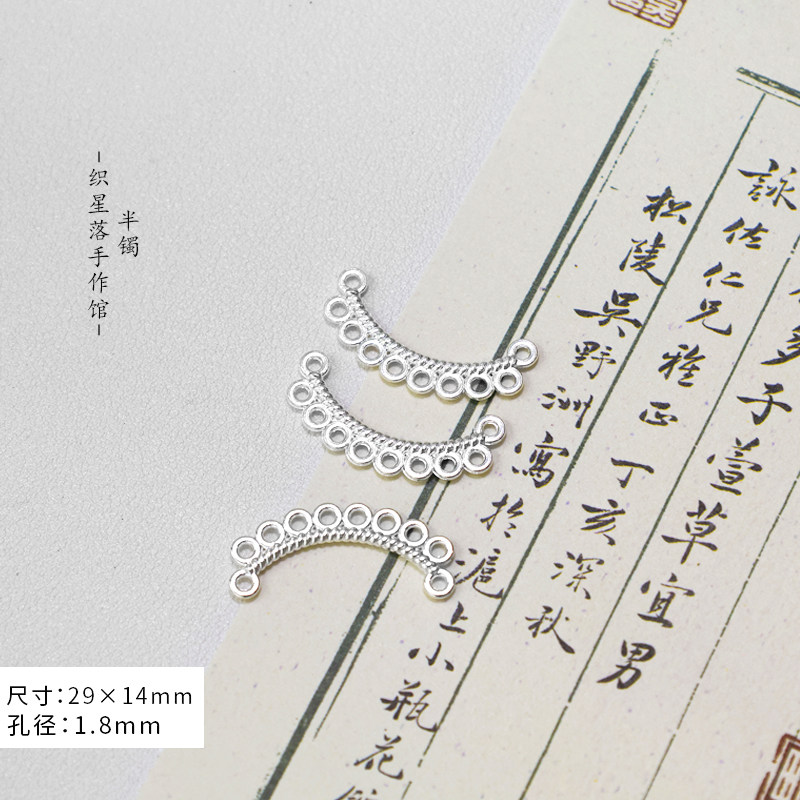 半镯
-织星落手作馆-
多子萱草宜男
詠佐仁兄雅正丁亥深秋
松陵吳野洲寫於滬上小瓶花
尺寸:29×14mm
孔径:1.8mm